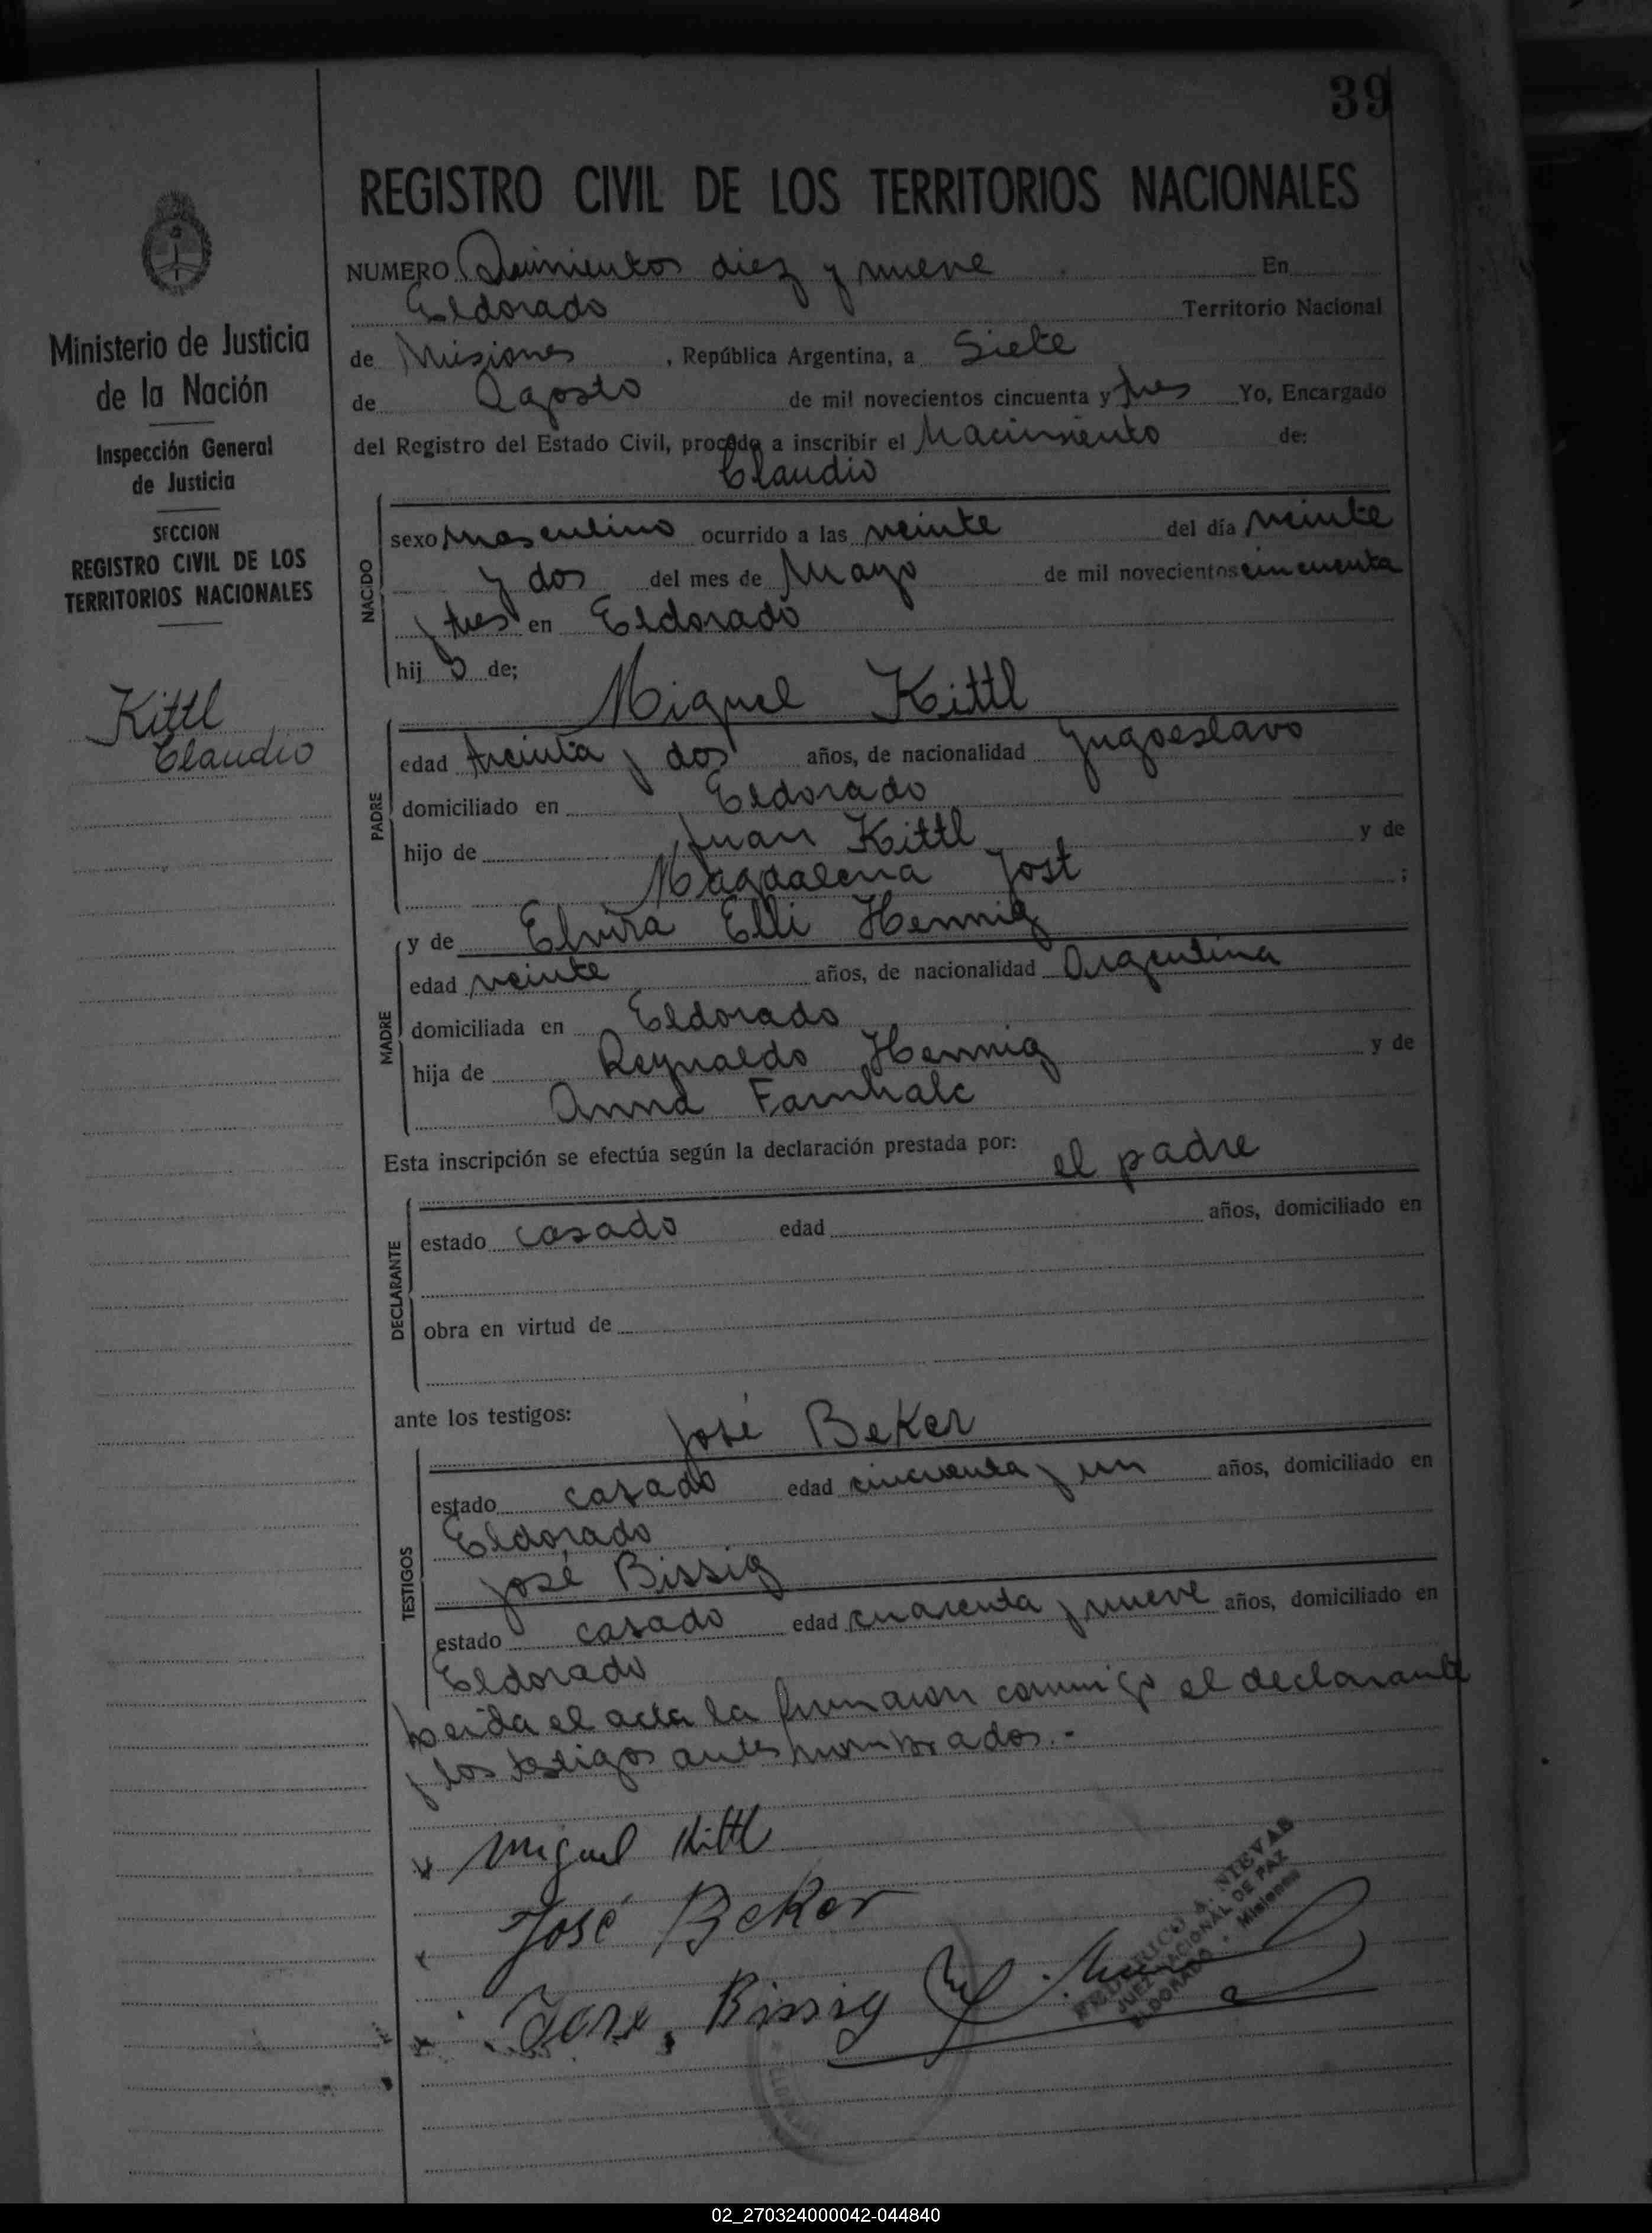 39
REGISTRO CIVIL DE LOS TERRITORIOS NACIONALES
NUMERO Quinientos diez y nueve En
Eldorado Territorio Nacional
de Misiones, República Argentina, a Siete
de Agosto de mil novecientos cincuenta y tres Yo, Encargado
del Registro del Estado Civil, procedo a inscribir el Nacimiento de:
Claudio
NACIDO
sexo masculino ocurrido a las veinte del día veinte
y dos del mes de Mayo de mil novecientos cincuenta
y tres en Eldorado
hijo de;
Miguel Kittl
PADRE
edad treinta y dos años, de nacionalidad Yugoeslavo
domiciliado en Eldorado
hijo de Juan Kittl y de
Magdalena Jost ;
MADRE
y de Elvira Elli Hennig
edad veinte años, de nacionalidad Argentina
domiciliada en Eldorado
hija de Reynaldo Hennig y de
Anna
Esta inscripción se efectúa según la declaración prestada por: el padre
DECLARANTE
estado casado edad años, domiciliado en
obra en virtud de
ante los testigos: José Beker
TESTIGOS
estado casado edad cincuenta y un años, domiciliado en
Eldorado
José Bissig
estado casado edad cuarenta y nueve años, domiciliado en
Eldorado
Leida el acta la firmaron conmigo el declarante
y los testigos antes nombrados.-
Miguel Kittl
José Beker
Jose Bissig
FEDERICO A. NIEVAS
JUEZ NACIONAL DE PAZ
ELDORADO - Misiones
Ministerio de Justicia
de la Nación
Inspección General
de Justicia
SECCION
REGISTRO CIVIL DE LOS
TERRITORIOS NACIONALES
Kittl
Claudio
02_270324000042-044840